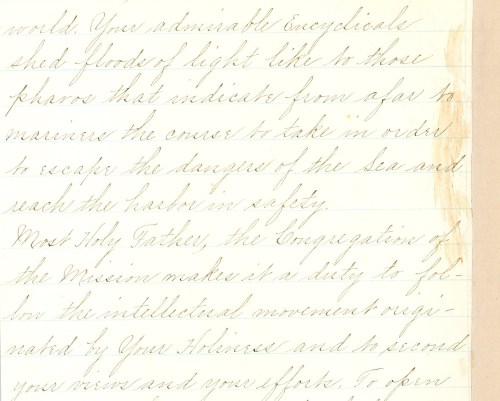 world. Your admirable Encyclicals
shed floods of light like to those
pharos that indicate from afar to
mariners the course to take in order
to escape the dangers of the Sea and
reach the harbor in safety.
Most Holy Father, the Congregation of
the Mission makes it a duty to fol-
low the intellectual movement origi-
nated by Your Holiness and to second
your views and your efforts. To open